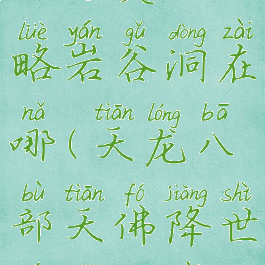 lüè yán gǔ dòng zài
略岩谷洞在
nǎ tiān lóng bā
哪(天龙八
bù tiān fó jiàng shì
部天佛降世